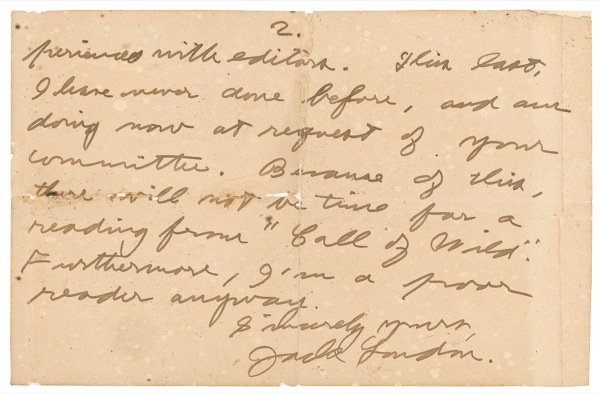 2.
periences with editors. This last,
I have never done before, and am
doing now at request of your
committee. Because of this,
there will not be time for a
reading from "Call of Wild".
Furthermore, I'm a poor
reader anyway.
Sincerely yours,
Jack London.